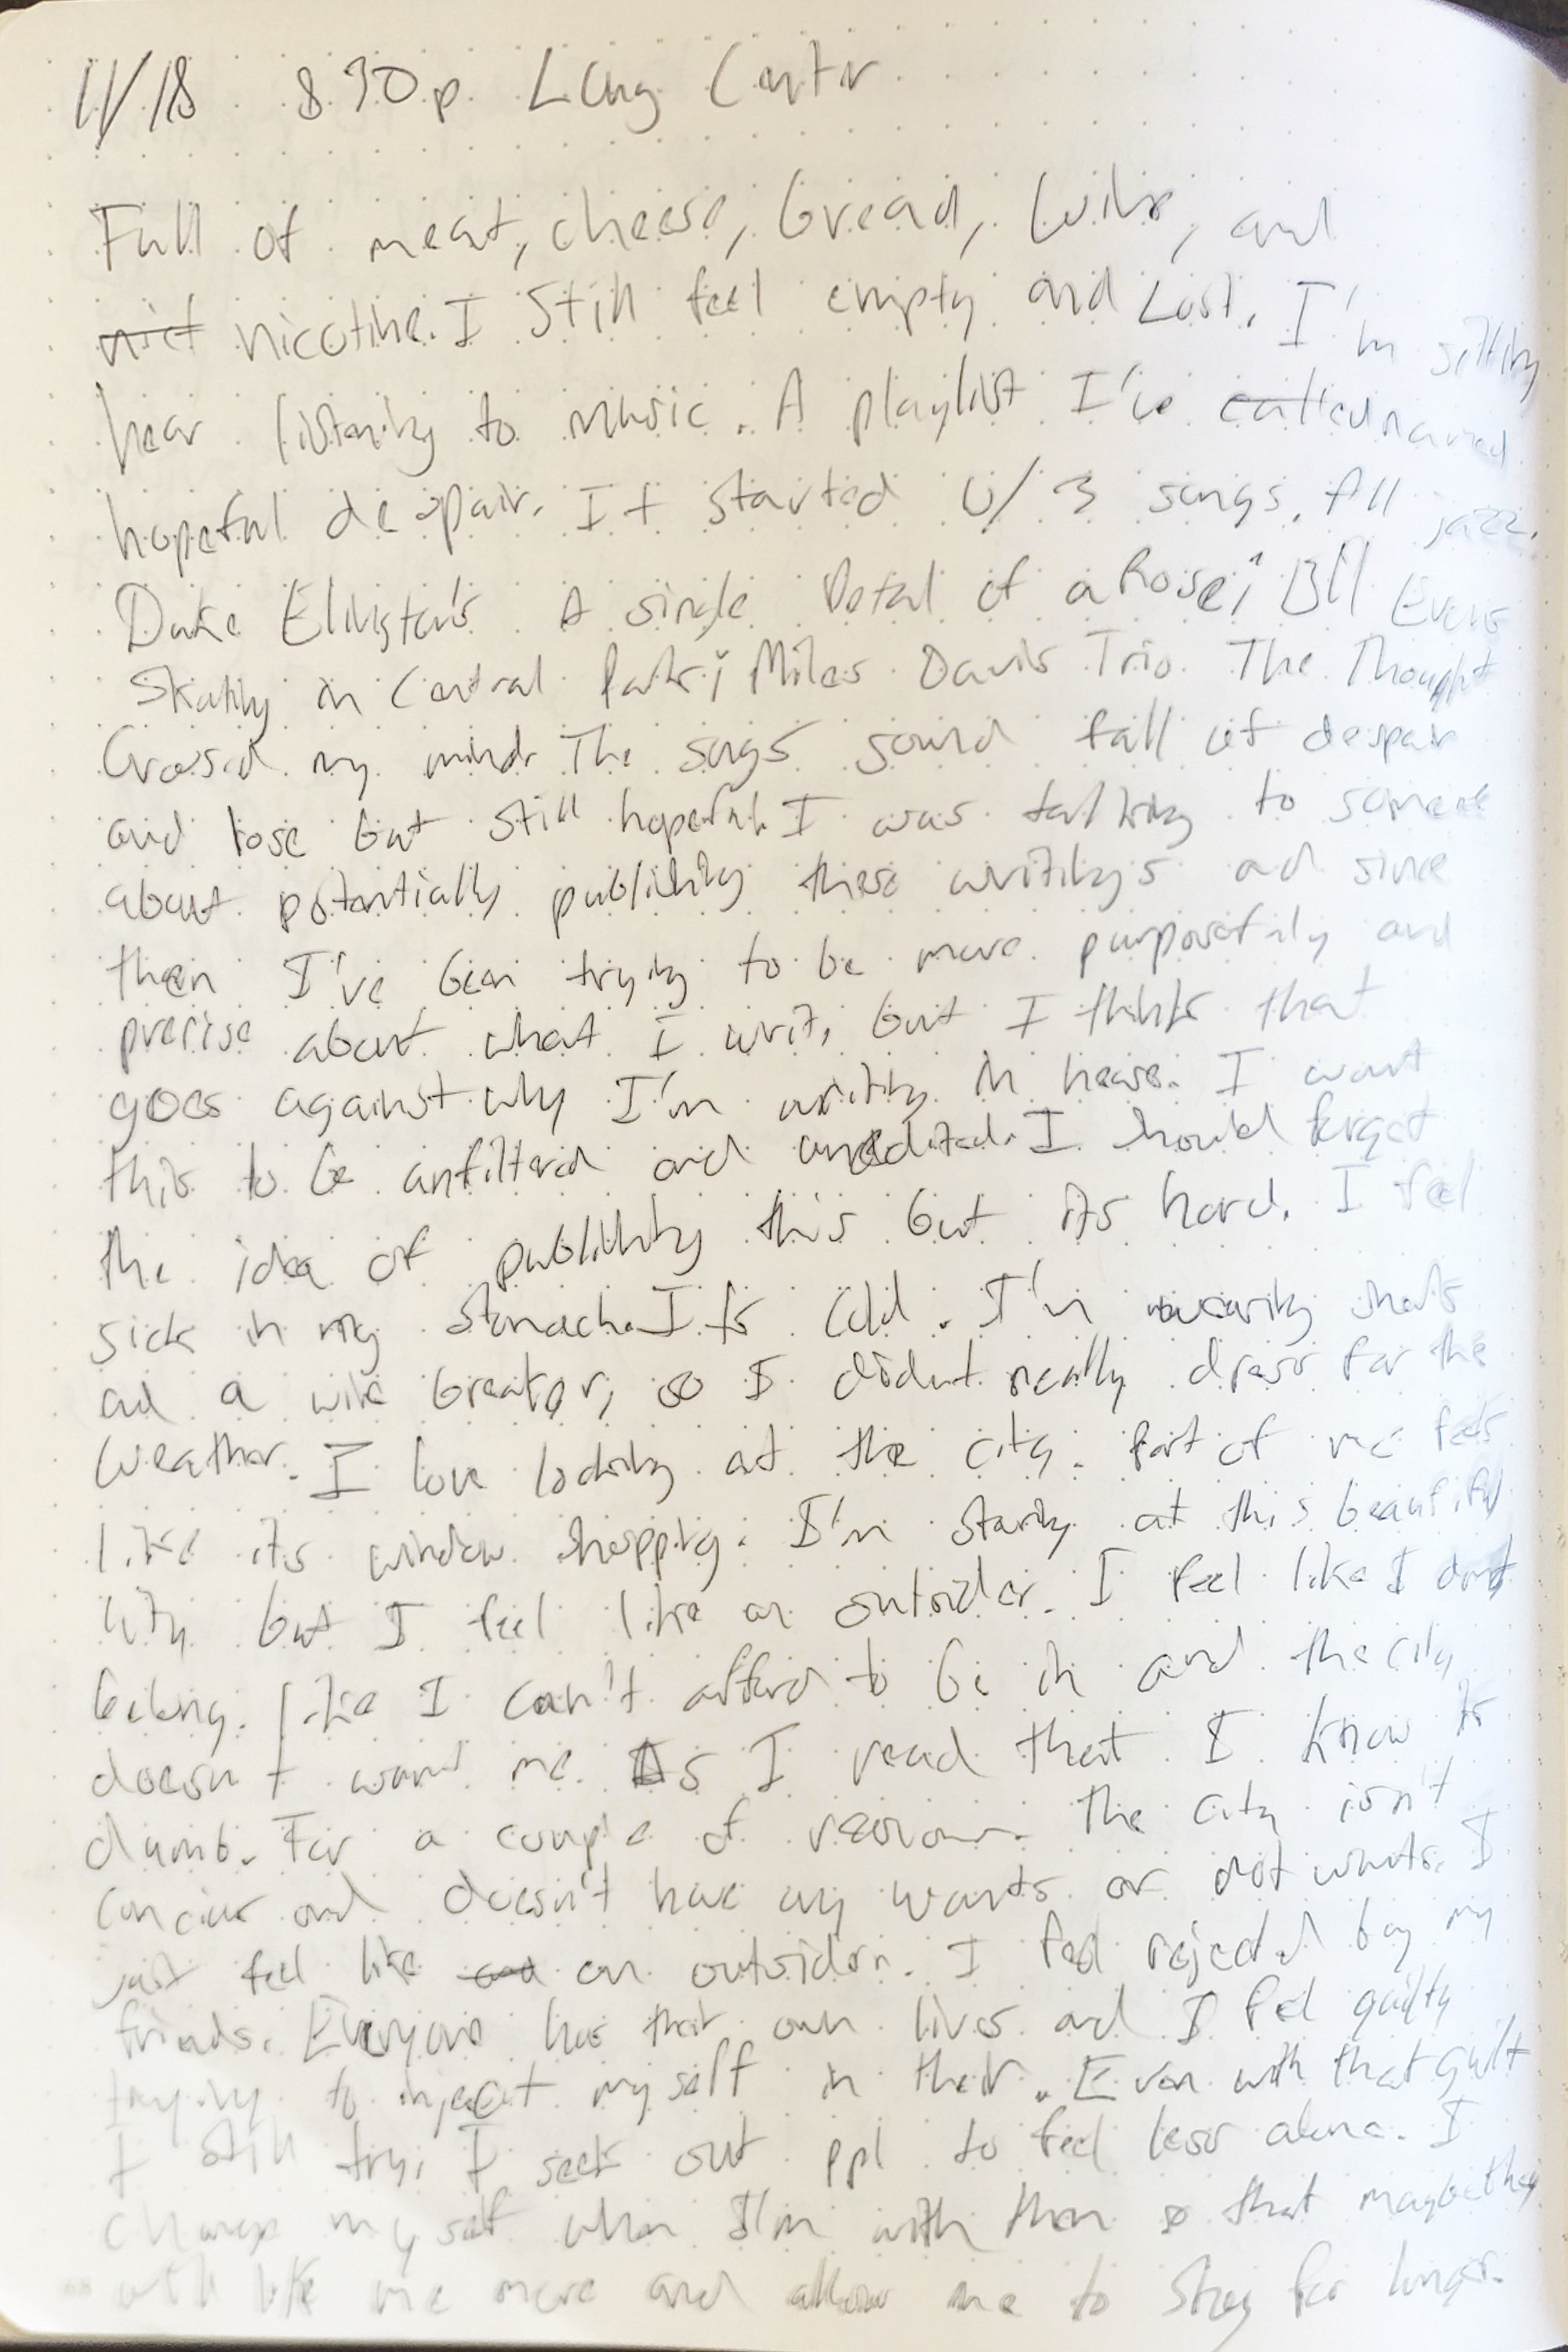 11/18 8:30p Long Center
Full of meat, cheese, bread, wine, and
nict nicotine. I still feel empty and lost. I'm sitting
hear listening to music. A playlist I've called named
hopeful despair. It started w/ 3 songs. All jazz.
Duke Elington's A single Petal of a Rose; Bill Evans
Skating in Central Park; Miles Davis Trio The Thought
Crossed my mind. The songs sound full of despair
and lose but still hopeful. I was talking to someone
about potentially publishing these writing's ad since
then I've been trying to be more purposefuly and
precise about what I write, but I think that
goes against why I'm writing in hear. I want
this to be unfiltered and unedited. I should forget
the idea of publishing this but its hard. I feel
sick in my stomach. Its cold. I'm wearing shorts
ad a wife breater, so I didnt really dress for the
weather. I love looking at the city. Part of me feels
like its window shopping. I'm staring at this beautiful
city but I feel like an outsider. I feel like I dont
belong. Like I can't afford to be in and the city
doesn't want me. As I read that I know its
dumb. For a couple of reasons. The city isn't
concious and doesn't have any wants or not wants. I
just feel like an outsider. I feel rejected by my
friends. Everyone has their own lives ad I feel guilty
trying to inject myself in their. Even with that guilt
I still try. I seek out ppl to feel less alone. I
change myself when I'm with them so that maybe they
will like me more and allow me to stay for longer.